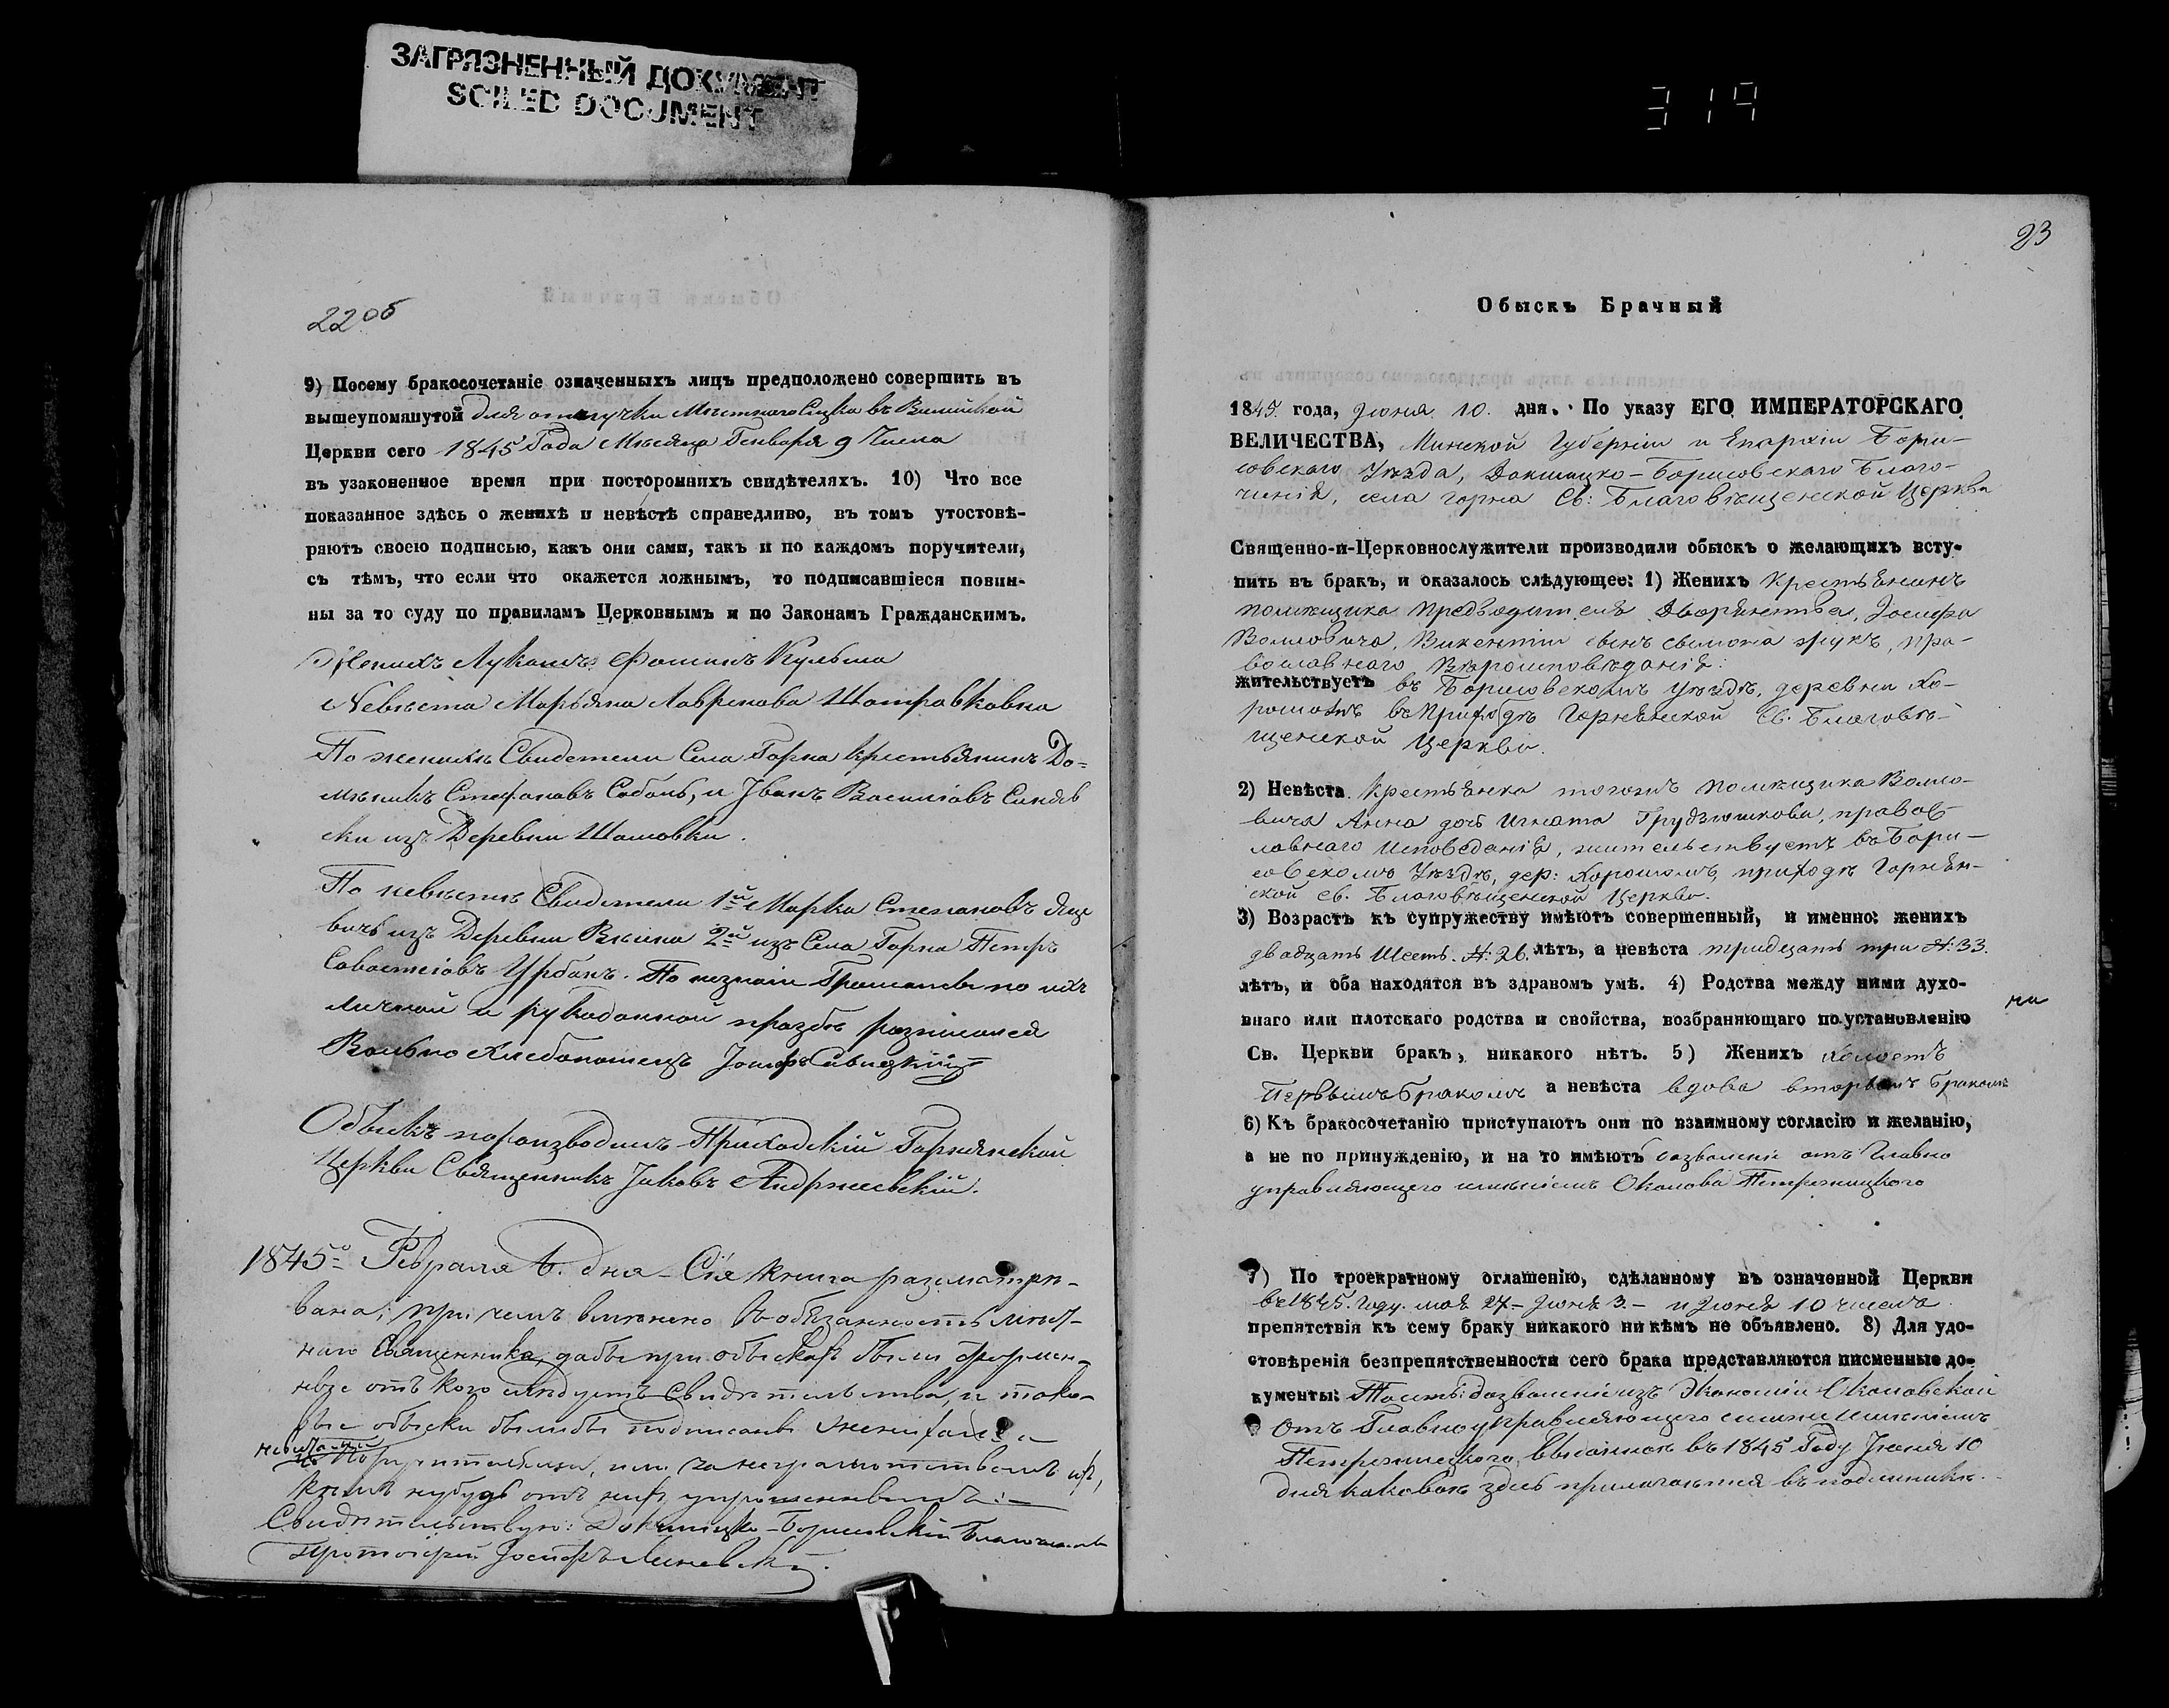 ЗАГРЯЗНЕННЫЙ ДОКУМЕНТ
SOILED DOCUMENT
319
22 об
9) Посему бракосочетаніе означенныхъ лицъ предположено совершить въ
вышеупомянутой для отлучки Местнаго въ
Церкви сего 1845 Года Месяца Генваря 9 Числа
въ узаконенное время при постороннихъ свидѣтеляхъ. 10) Что все
показанное здѣсь о женихѣ и невѣстѣ справедливо, въ томъ утостовѣ-
ряютъ своею подписью, какъ они сами, такъ и по каждомъ поручители,
съ тѣмъ, что если что окажется ложнымъ, то подписавшіеся повин-
ны за то суду по правиламъ Церковнымъ и по Законамъ Гражданскимъ.
Женихъ Лукашъ Фоминъ
Невѣста Марьяна Лавренова
По женихѣ Свидетели Села Горна Крестьянинъ До-
Стефановъ Соболь, и Иванъ Василіовъ
ски изъ Деревни
По невѣстѣ Свидетели 1й Марко Степановъ
вичъ изъ Деревни 2й изъ Села Горна Петръ
Савастіовъ Урбанъ. По незнаніи Грамоты по ихъ
личной и рукоданной прозбѣ росписался
Вольно Хлебопашецъ Іосифъ Савицкій
Обыскъ производилъ Приходскій Горнянской
Церкви Священникъ Іаковъ Андржеевскій.
1845го Февраля 6. дня Сія книга разсматри-
вана; при чемъ вмѣнено въ обязанность мѣст-
наго Священника, дабы при обыскахъ были
отъ кого следуетъ свидѣтельства, и тако-
вые обыски былибы подписаны женихами
невѣстами
и Поручительми, или за неграмотствомъ ихъ,
кѣмъ нибудь отъ нихъ упрошеннымъ:
Свидѣтельствую: Докшицко-Борисовскій Благочинный
Протоіерей Іосифъ
23
Обыскъ Брачный
1845 года, Іюня 10. дня. По указу ЕГО ИМПЕРАТОРСКАГО
ВЕЛИЧЕСТВА, Минской Губерніи и Епархіи Бори-
совскаго Уезда, Докшицко-Борисовскаго Благо-
чинія, села Горна Св: Благовѣщенской Церкви
Священно-и-Церковнослужители производили обыскъ о желающихъ всту-
пить въ бракъ, и оказалось слѣдующее: 1) Женихъ Крестьянинъ
помѣщика Предводителя Дворянства, Іосифа
Воловича, Викентіи сынъ Жукъ, пра-
вославнаго Вѣроисповѣданія:
жительствуетъ въ Борисовскомъ Уездѣ, деревни Хо-
въ Приходѣ Горнянской Св. Благовѣ-
щенской Церкви.
2) Невѣста Крестьянка тогожъ помѣщика Воло-
вича Анна дочь Игната правос-
лавнаго исповеданія, жительствуетъ въ Бори-
совскомъ Уездѣ, дер: приходѣ Горнян-
ской Св. Благовѣщенской Церкви.
3) Возрастъ къ супружеству имѣютъ совершенный, и именно: женихъ
двадцать шесть. 26. лѣтъ, а невѣста тридцать три 33.
лѣтъ, и оба находятся въ здравомъ умѣ. 4) Родства между ними духо-
внаго или плотскаго родства и свойства, возбраняющаго по установленію
Св. Церкви бракъ, никакого нѣтъ. 5) Женихъ холостъ
Первымъ бракомъ а невѣста вдова вторымъ бракомъ
6) Къ бракосочетанію приступаютъ они по взаимному согласію и желанію,
а не по принужденію, и на то имѣютъ дозволеніе отъ Главно
управляющего имѣніемъ Околова
7) По троекратному оглашенію, сдѣланному въ означенной Церкви
въ 1845. Году. мая 27 - Іюня 3. - и Іюня 10 числа
препятствія къ сему браку никакого ни кѣмъ не объявлено. 8) Для удо-
стовѣренія безпрепятственности сего брака представляются писменные до-
кументы: дозволеніе изъ Экономіи Околовской
Отъ Главноуправляющего имѣніемъ
въ 1845 Году Іюня 10
дня каковой здесь прилагается въ подлинникѣ.